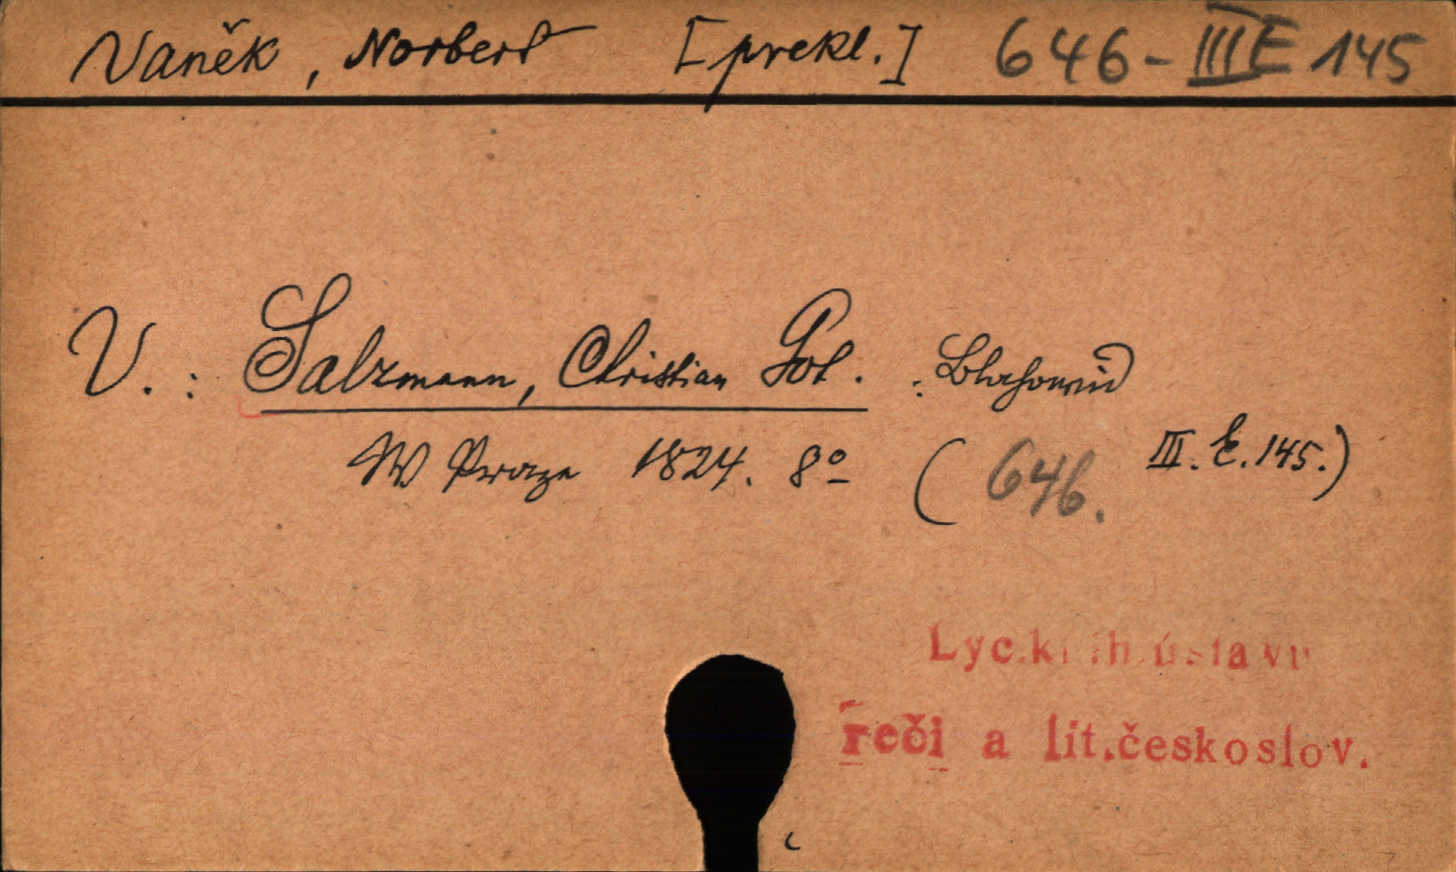 Vaněk, Norbert [prekl.] 646-III E 145
V. : Salzmann, Christian Got. : Blahomrid
W Praze 1824. 8º (646. III. E. 145.)
Lyc.k ih.ústavu
řeči a lit.českoslov.